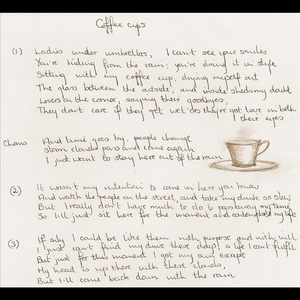 Coffee cups
(1) Ladies under umbrellas, I can't see your smiles
You're hiding from the rain; you're doing it in style
Sitting with my coffee cup, drying myself out
The glass between the outside, and inside sheds my doubt
Lovers in the corner, saying their goodbyes,
They don't care if they get wet; do they've got love in both
their eyes.
Chorus And time goes by, people change
Storm clouds pass and come again
I just want to stay here out of the rain
(2) It wasn't my intention to come in here you know
And watch the people on the street, and take my drink so slow
But I really don't have much to do to pass away my time,
So I'll just sit here for the moment and contemplate my life
(3) If only I could be like them with purpose and with will
I just can't find my drive these days! a life I can't fulfil
But just for this moment I got my own escape
My head is up there with these clouds,
But I'll come back down with the rain